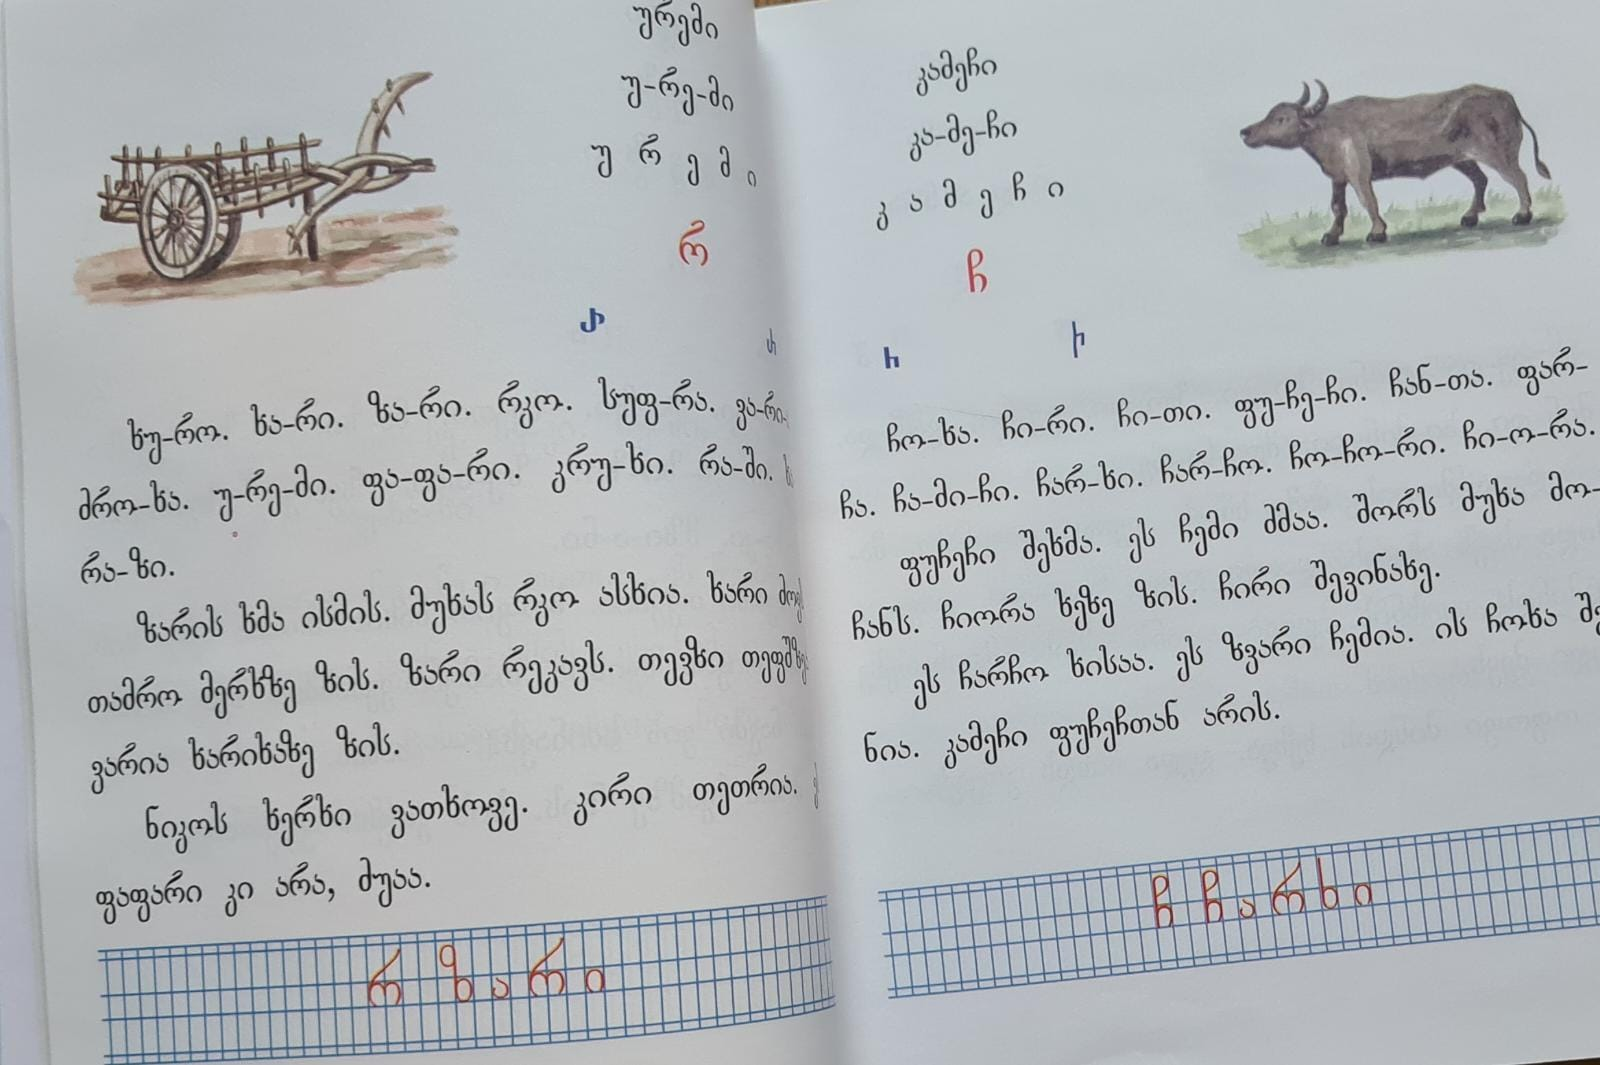 ურემი
უ-რე-მი
უ რ ე მ ი
რ
Ⴐ ⴐ
სუ-რო. ხა-რი. ზა-რი. რკო. სუფ-რა. ვა-რი-
მრო-ხა. უ-რე-მი. ფა-ფა-რი. კრუ-ხი. რა-ში.
რა-ზი.
ზარის ხმა ისმის. მუხას რკო ასხია. ხარი
თამრო მერხზე ზის. ზარი რეკავს. თევზი თეფშზე
ვარია ხარიხაზე ზის.
ნიკოს ხერხი ვათხოვე. კირი თეთრია.
ფაფარი კი არა, მუაა.
რ ზარი
კამეჩი
კა-მე-ჩი
კ ა მ ე ჩ ი
ჩ
Ⴙ ⴙ
ჩო-ხა. ჩი-რი. ჩი-თი. ფუ-ჩე-ჩი. ჩან-თა. ფარ-
ჩა. ჩა-მი-ჩი. ჩარ-ხი. ჩარ-ჩო. ჩო-ჩო-რი. ჩი-ო-რა.
ფუჩეჩი შეხმა. ეს ჩემი მმაა. შორს მუხა მო-
ჩანს. ჩიორა ხეზე ზის. ჩირი შევინახე.
ეს ჩარჩო ხისაა. ეს ზვარი ჩემია. ის ჩოხა შე
ნია. კამეჩი ფუჩეჩთან არის.
ჩ ჩარხი